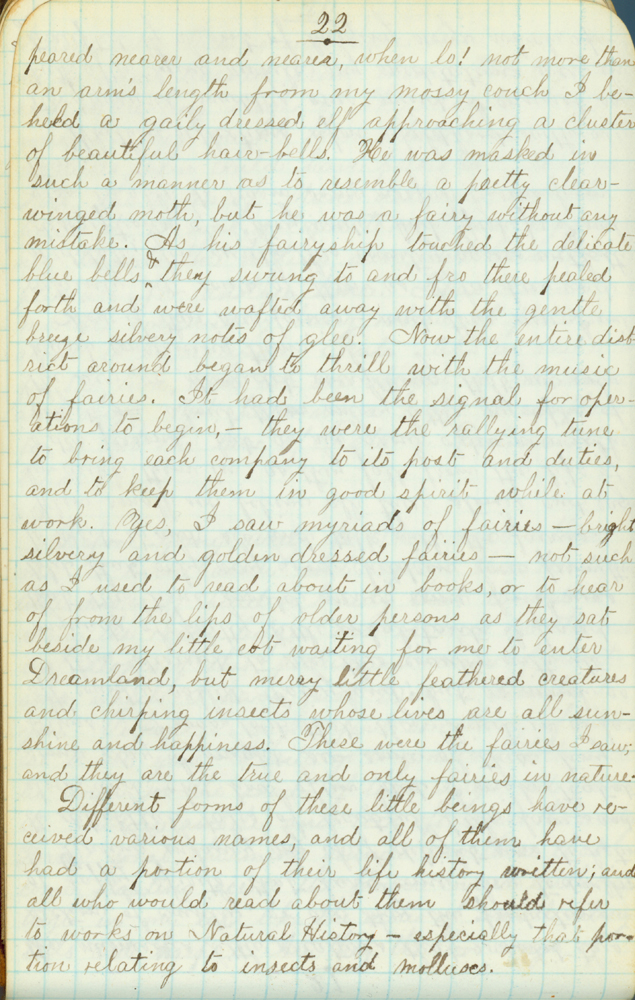 22
peared nearer and nearer, when lo! not more than
an arm's length from my mossy couch I be-
held a gaily dressed elf approaching a cluster
of beautiful hair-bells. He was masked in
such a manner as to resemble a pretty clear-
winged moth, but he was a fairy without any
mistake. As his fairyship touched the delicate
blue bells & they swung to and fro there pealed
forth and were wafted away with the gentle
breeze silvery notes of glee. Now the entire dist-
rict around began to thrill with the music
of fairies. It had been the signal for oper-
ations to begin, – they were the rallying tune
to bring each company to its post and duties,
and to keep them in good spirit while at
work. Yes, I saw myriads of fairies – bright
silvery and golden dressed fairies – not such
as I used to read about in books, or to hear
of from the lips of older persons as they sat
beside my little cot waiting for me to enter
Dreamland, but merry little feathered creatures
and chirping insects whose lives are all sun-
shine and happiness. These were the fairies I saw;
and they are the true and only fairies in nature.
Different forms of these little beings have re-
ceived various names, and all of them have
had a portion of their life history written; and
all who would read about them should refer
to works on Natural History – especially that por-
tion relating to insects and molluscs.